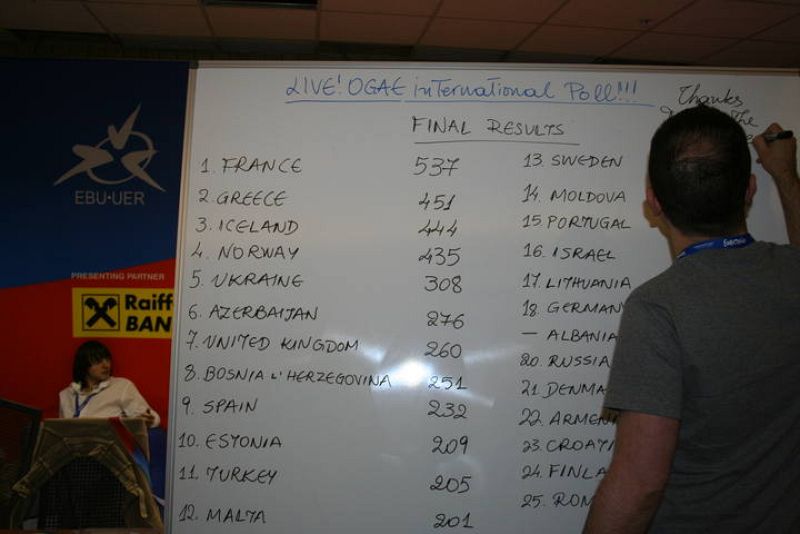 LIVE! OGAE international Poll!!!
Thanks
The
FINAL RESULTS
1. FRANCE 537
2. GREECE 451
3. ICELAND 444
4. NORWAY 435
5. UKRAINE 308
6. AZERBAIJAN 276
7. UNITED KINGDOM 260
8. BOSNIA & HERZEGOVINA 251
9. SPAIN 232
10. ESTONIA 209
11. TURKEY 205
12. MALTA 201
13. SWEDEN
14. MOLDOVA
15. PORTUGAL
16. ISRAEL
17. LITHUANIA
18. GERMANY
— ALBANIA
20. RUSSIA
21. DENMA
22. ARMEN
23. CROATI
24. FINLA
25. ROM
EBU·UER
PRESENTING PARTNER
Raiff
BAN